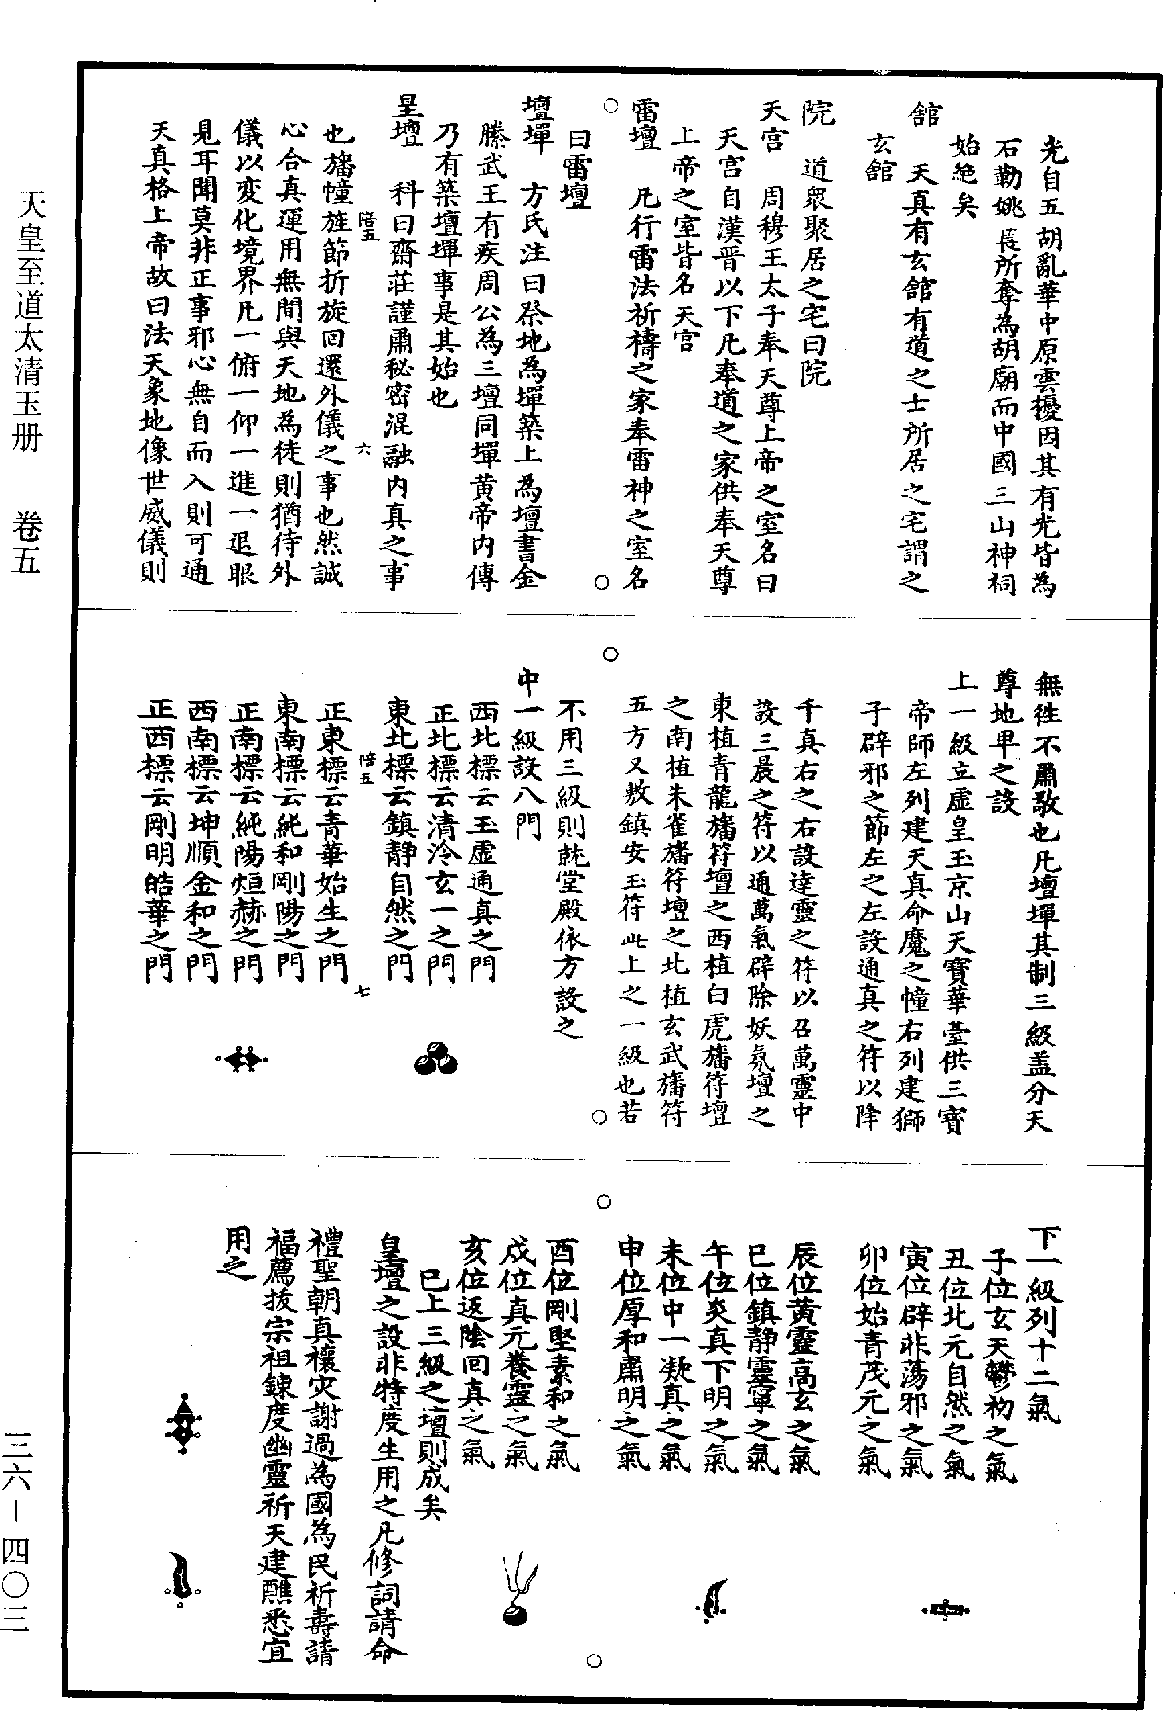 天皇至道太清玉册　卷五
三六—四〇三
光自五胡亂華中原雲擾因其有光皆為
石勒姚萇所奪為胡廟而中國三山神祠
始絶矣
館　天真有玄館有道之士所居之宅謂之
玄館
院　道衆聚居之宅曰院
天宫　周穆王太子奉天尊上帝之室名曰
天宫自漢晋以下凡奉道之家供奉天尊
上帝之室皆名天宫
雷壇　凡行雷法祈禱之家奉雷神之室名
曰雷壇
壇墠　方氏注曰祭地為墠築上為壇書金
縢武王有疾周公為三壇同墠黄帝内傳
乃有築壇墠事是其始也
皇壇　科曰齋莊謹肅秘密混融内真之事
陪五　六
也旛幢旌節折旋回還外儀之事也然誠
心合真運用無間與天地為徒則猶待外
儀以変化境界凡一俯一仰一進一退眼
見耳聞莫非正事邪心無自而入則可通
天真格上帝故曰法天象地像世威儀則
無往不肅敬也凡壇墠其制三級盖分天
尊地卑之設
上一級立虚皇玉京山天寶華臺供三寶
帝師左列建天真命魔之幢右列建獅
子辟邪之節左之左設通真之符以降
千真右之右設達靈之符以召萬靈中
設三晨之符以通萬氣辟除妖氛壇之
東植青龍旛符壇之西植白虎旛符壇
之南植朱雀旛符壇之北植玄武旛符
五方又敷鎮安玉符此上之一級也若
不用三級則就堂殿依方設之
中一級設八門
西北標云玉虚通真之門
正北標云清泠玄一之門
東北標云鎮靜自然之門
陪五　七
正東標云青華始生之門
東南標云純和剛陽之門
正南標云純陽烜赫之門
西南標云坤順金和之門
正西標云剛明皓華之門
下一級列十二氣
子位玄天鬱初之氣
丑位北元自然之氣
寅位辟非蕩邪之氣
卯位始青茂元之氣
辰位黄靈高玄之氣
巳位鎮靜靈寧之氣
午位炎真下明之氣
未位中一凝真之氣
申位厚和肅明之氣
酉位剛堅素和之氣
戌位真元養靈之氣
亥位返陰回真之氣
已上三級之壇則成矣
皇壇之設非特度生用之凡修詞請命
禮聖朝真禳灾謝過為國為民祈壽請
福薦拔宗祖錬度幽靈祈天建醮悉宜
用之